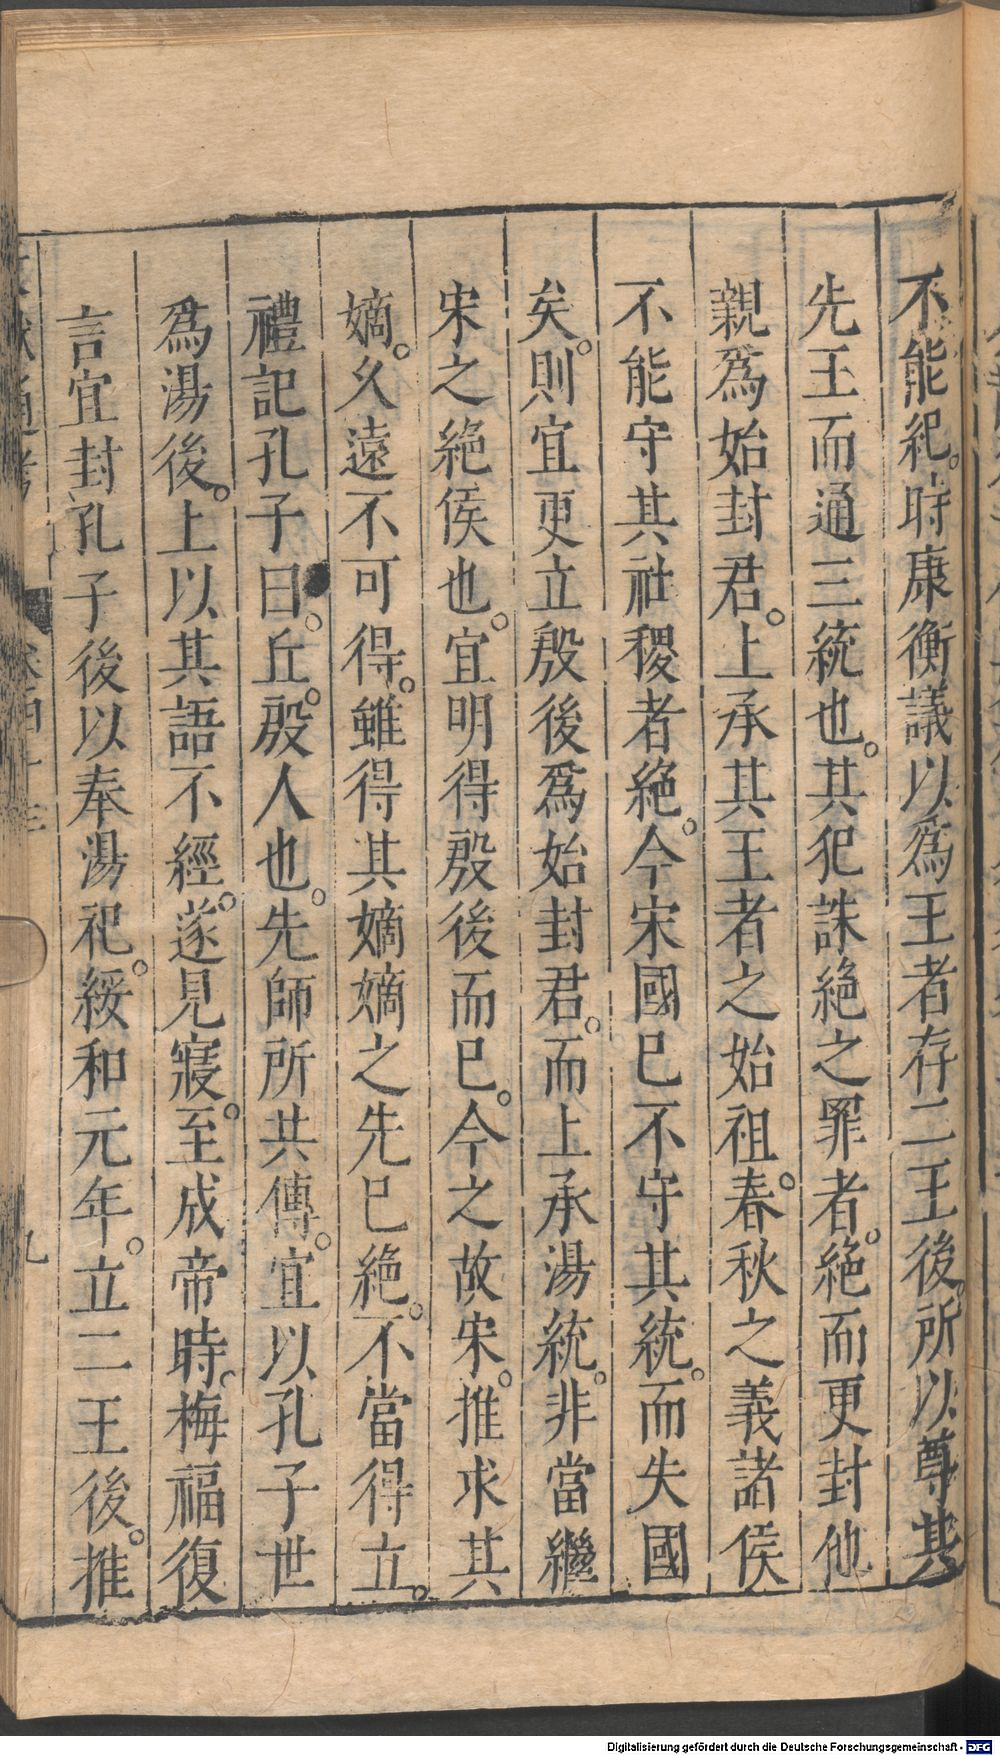 不能紀。時康衡議以爲王者存二王後。所以尊其
先王而通三統也。其犯誅絶之罪者。絶而更封他
親爲始封君。上承其王者之始祖。春秋之義諸侯
不能守其社稷者絶。今宋國已不守其統。而失國
矣。則宜更立殷後爲始封君。而上承湯統。非當繼
宋之絶侯也。宜明得殷後而已。今之故宋。推求其
嫡。久遠不可得。雖得其嫡嫡之先已絶。不當得立。
禮記孔子曰。丘。殷人也。先師所共傳。宜以孔子世
爲湯後。上以其語不經。遂見寢。至成帝時。梅福復
言宜封孔子後以奉湯祀。綏和元年。立二王後。推
九
Digitalisierung gefördert durch die Deutsche Forschungsgemeinschaft - DFG